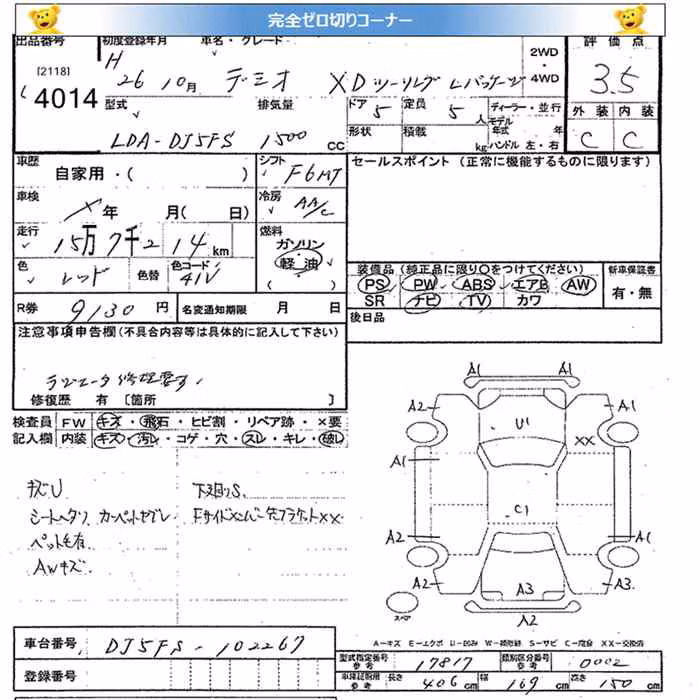 完全ゼロ切りコーナー
出品番号 初度登録年月 車名・グレード 2WD・4WD 評価点
[2118] 4014 H 26 10月 デミオ XDツーリング Lパッケージ 3.5
型式 排気量 ドア 5 定員 5人 ディーラー・並行 外装 内装
LDA-DJ5FS 1500cc 形状 積載 kg モデル年式 年 ハンドル 左・右 C C
車歴 自家用・( ) シフト F6MT セールスポイント (正常に機能するものに限ります)
車検 X年 月( 日) 冷房 AA/C
走行 15万7千214km 燃料 ガソリン・軽油・( )
色 レッド 色替 色コード 41V 装備品(純正品に限り○をつけてください) 新車保証書
PS PW ABS エアB AW 有・無
R券 9130円 名変通知期限 月 日 SR ナビ TV カワ
注意事項申告欄(不具合内容等は具体的に記入して下さい) 後日品
ラジエータ修理要す
修復歴 有 〔箇所 〕
検査員記入欄 FW キズ・飛石・ヒビ割・リペア跡・×要
内装 キズ・汚レ・コゲ・穴・スレ・キレ・破レ
キズU 下廻りS
シートヘタリ カーペットヤブレ
ペット毛有
AWキズ
A1 A1
A2 A1
U1 XX
A1
C1
A2 A1
A2 A3 A3
スペア A2
A-キズ E-エクボ U-凹み W-補修跡 S-サビ C-腐食 XX-交換済
車台番号 DJ5FS-102267
型式指定番号参考 17817 類別区分番号参考 0002
登録番号 車庫証明用参考 長さ 406cm 幅 169cm 高さ 150cm